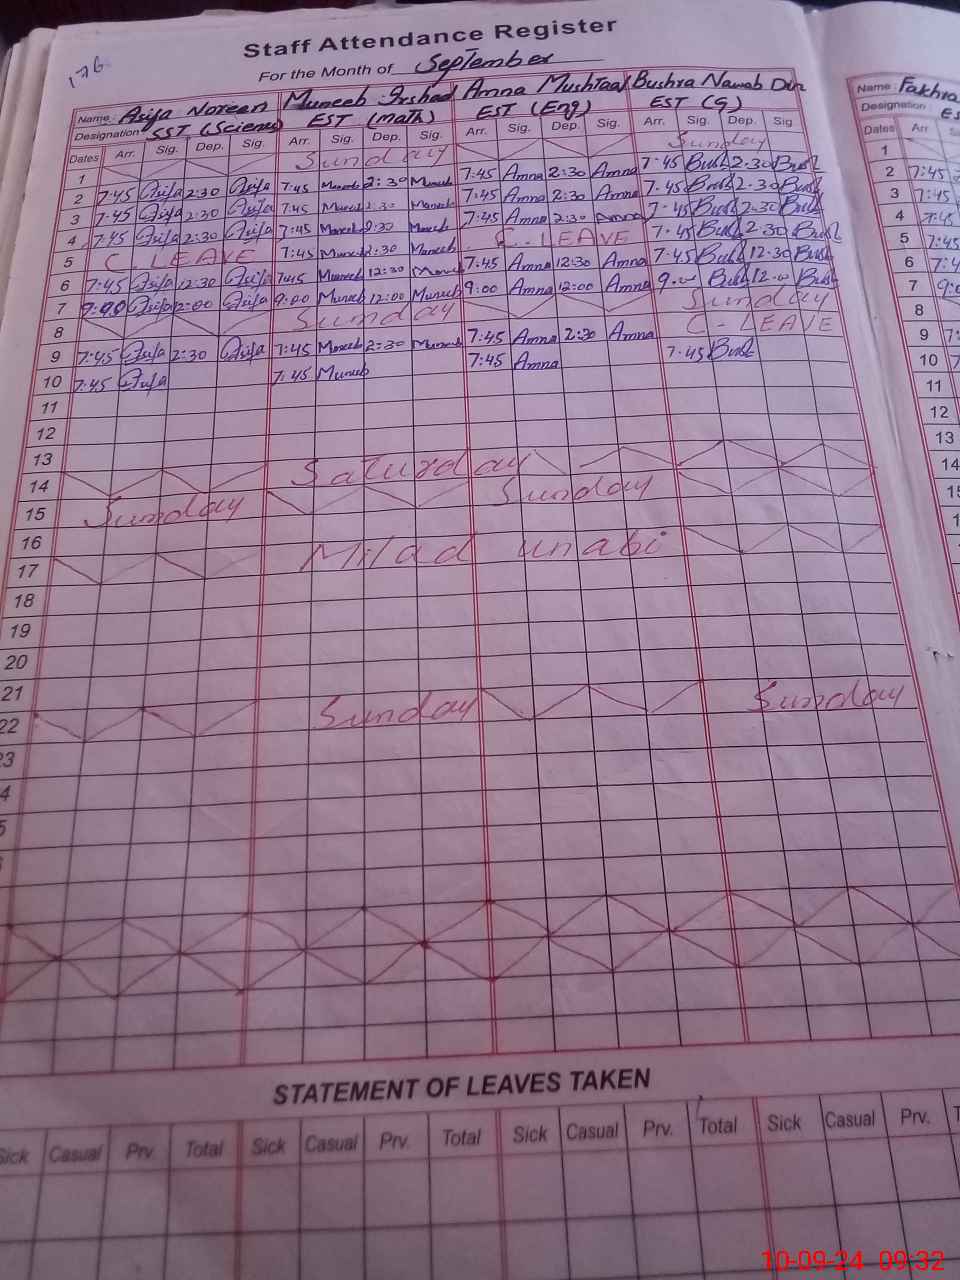 176
Staff Attendance Register
For the Month of September
Name: Asifa Noreen Muneeb Irshad Amna Mushtaq Bushra Nawab Din Name: Fakhra
Designation SST (Science) EST (math) EST (Eng) EST (G) Designation ES
Dates Arr. Sig. Dep. Sig. Arr. Sig. Dep. Sig. Arr. Sig. Dep. Sig. Arr. Sig. Dep. Sig Dates Arr
1 Sunday Sunday 1
2 7:45 Asifa 2:30 Asifa 7:45 Muneeb 2:30 Muneeb 7:45 Amna 2:30 Amna 7:45 Bush 2:30 Bush 2 7:45
3 7:45 Asifa 2:30 Asifa 7:45 Muneeb 2:30 Muneeb 7:45 Amna 2:30 Amna 7:45 Bush 2:30 Bush 3 7:45
4 7:45 Asifa 2:30 Asifa 7:45 Muneeb 2:30 Muneeb 7:45 Amna 2:30 Amna 7:45 Bush 2:30 Bush 4 7:45
5 C. LEAVE 7:45 Muneeb 2:30 Muneeb C-LEAVE 7:45 Bush 2:30 Bush 5 7:45
6 7:45 Asifa 12:30 Asifa 7:45 Muneeb 12:30 Muneeb 7:45 Amna 12:30 Amna 7:45 Bush 12:30 Bush 6 7:4
7 9:00 Asifa 12:00 Asifa 9:00 Muneeb 12:00 Muneeb 9:00 Amna 12:00 Amna 9:00 Bush 12:00 Bush 7 9:0
8 Sunday Sunday 8
9 7:45 Asifa 2:30 Asifa 7:45 Muneeb 2:30 Muneeb 7:45 Amna 2:30 Amna C-LEAVE 9 7:4
10 7:45 Asifa 7:45 Muneeb 7:45 Amna 7:45 Bush 10 7
11 11
12 12
13 13
14 Saturday 14
15 Sunday Sunday
16
17 Milad unabi
18
19
20
21
22 Sunday Sunday
STATEMENT OF LEAVES TAKEN
Sick Casual Prv. Total Sick Casual Prv. Total Sick Casual Prv. Total Sick Casual Prv.
10-09-24 09:32